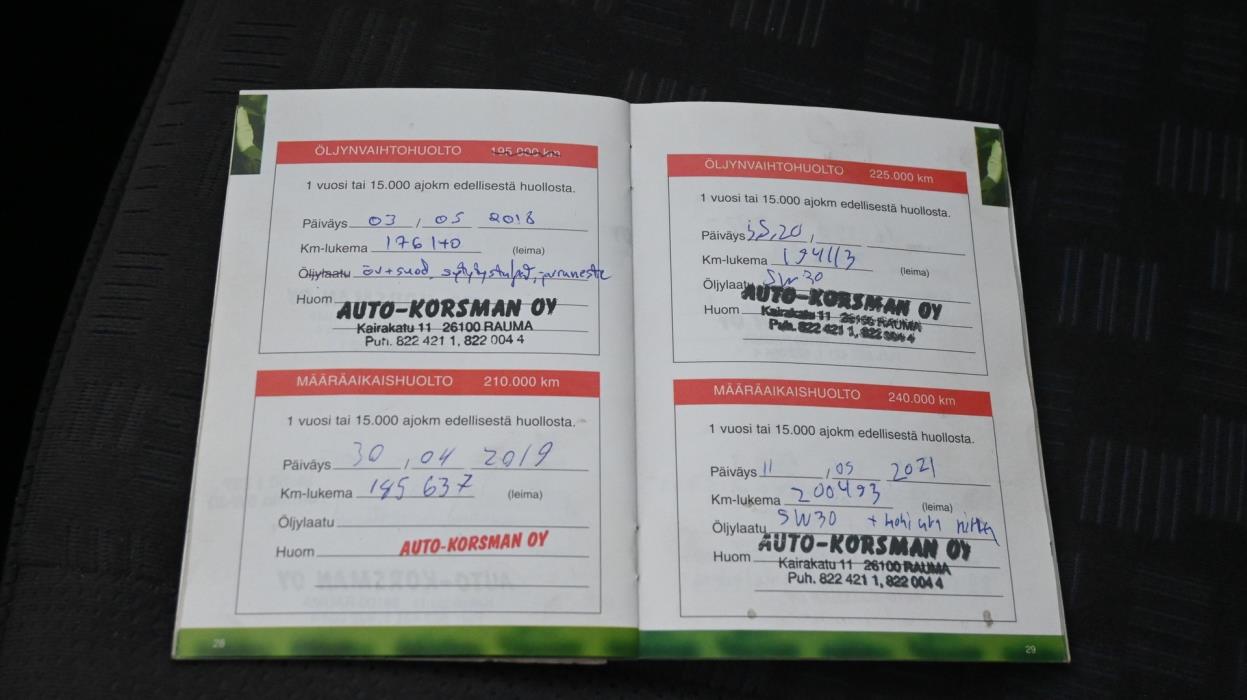 ÖLJYNVAIHTOHUOLTO 195.000 km
1 vuosi tai 15.000 ajokm edellisestä huollosta.
Päiväys 03 / 05 2018
Km-lukema 176140 (leima)
Öljylaatu öv+suod, jarruneste
Huom
AUTO-KORSMAN OY
Kairakatu 11 26100 RAUMA
Puh. 822 421 1, 822 004 4
MÄÄRÄAIKAISHUOLTO 210.000 km
1 vuosi tai 15.000 ajokm edellisestä huollosta.
Päiväys 30 / 04 2019
Km-lukema 185 637 (leima)
Öljylaatu
Huom AUTO-KORSMAN OY
28
ÖLJYNVAIHTOHUOLTO 225.000 km
1 vuosi tai 15.000 ajokm edellisestä huollosta.
Päiväys
Km-lukema 194113 (leima)
Öljylaatu 5W30
Huom AUTO-KORSMAN OY
Kairakatu 11 26100 RAUMA
Puh. 822 421 1, 822 004 4
MÄÄRÄAIKAISHUOLTO 240.000 km
1 vuosi tai 15.000 ajokm edellisestä huollosta.
Päiväys 11 / 05 2021
Km-lukema 200493 (leima)
Öljylaatu 5W30 +
Huom AUTO-KORSMAN OY
Kairakatu 11 26100 RAUMA
Puh. 822 421 1, 822 004 4
29